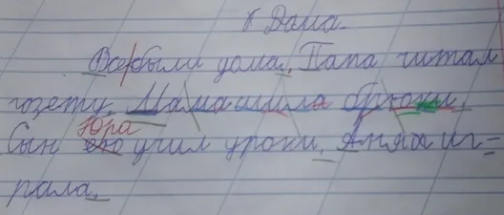 Дома.
Все были дома. Папа читал
газету. Мама шила брюки.
Юра
Сын учил уроки. Аня иг-
рала.